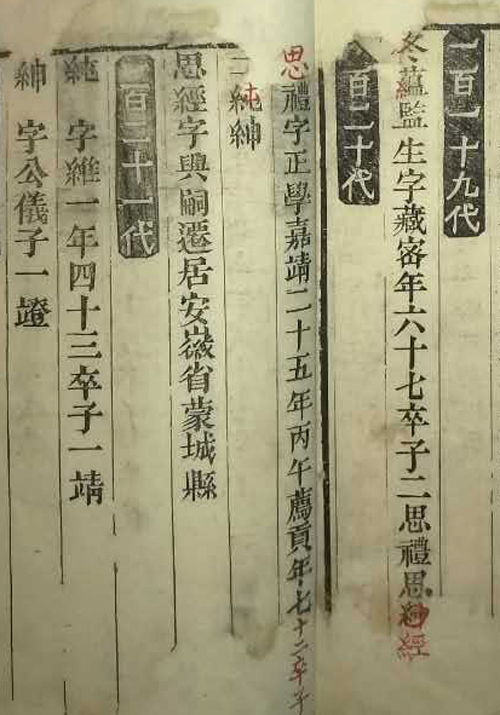 一百一十九代
冬蘊監生字藏密年六十七卒子二思禮思經
百二十代
思禮字正學嘉靖二十五年丙午薦貢年七十二卒子
二純紳
思經字興嗣遷居安徽省蒙城縣
一百二十一代
純 字維一年四十三卒子一靖
紳 字公儀子一